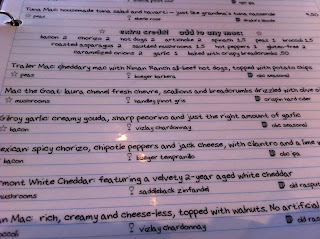 Tuna Mac: homemade tuna salad and havarti - just like grandma's tuna casserole
☆ peas
extra credit! add to any mac!
bacon 2 chorizo 2 hot dogs 2 artichoke 2 spinach 1.5 peas 1 broccoli 1.5
roasted asparagus 2 sautéed mushrooms 1.5 hot peppers 1 gluten-free 2
caramelized onions 2 garlic 1 baked with crispy breadcrumbs .50
Trailer Mac: cheddary mac with Niman Ranch all-beef hot dogs, topped with potato chips
☆ peas kieger barbera cbc seasonal
Mac the Goat: laura chenel fresh chevre, scallions and breadcrumbs drizzled with olive o
☆ mushrooms handley pinot gris crispin hard cider
Gilroy garlic: creamy gouda, sharp pecorino and just the right amount of garlic
☆ bacon vizlay chardonnay cbc seasonal
exican: spicy chorizo, chipotle peppers and jack cheese, with cilantro and a lime w
bacon kieger tempranillo cbc ipa
rmont White Cheddar: featuring a velvety 2-year aged white cheddar
mushrooms saddleback zinfandel old rasput
an Mac: rich, creamy and cheese-less, topped with walnuts. No artificial
occoli vizlay chardonnay old rasp